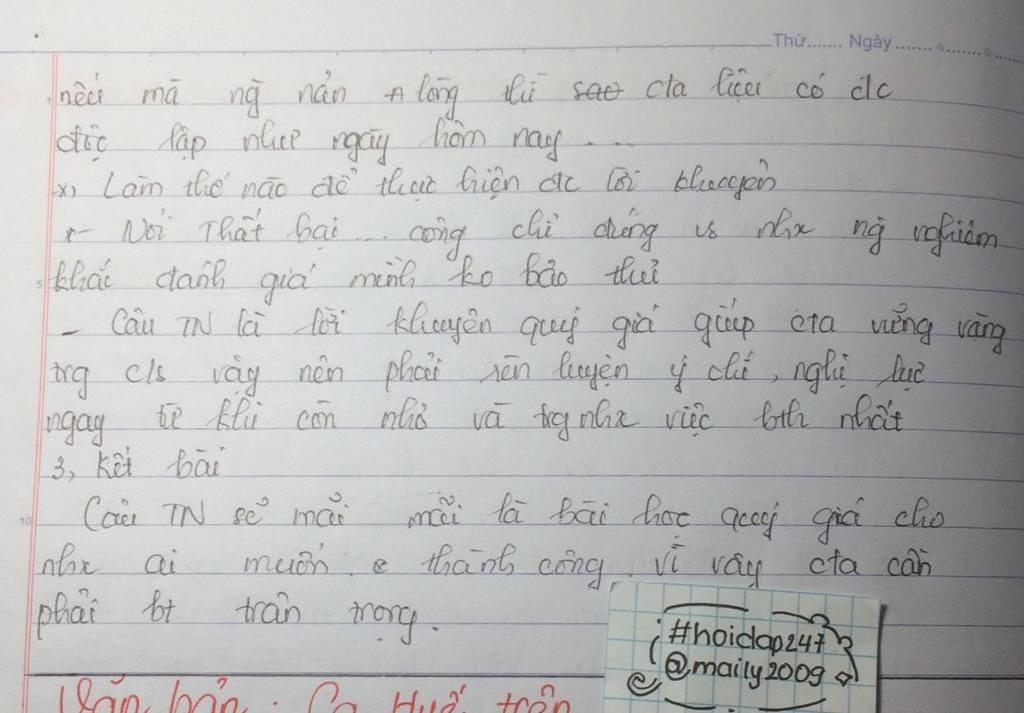 Thứ....... Ngày...............
nếu mà ng nản lòng thì sao cta liệu có đc
độc lập như ngày hôm nay ...
x, Làm thế nào để thực hiện đc lời khuyên
- Nói Thất bại ... công chỉ đúng vs nhx ng nghiêm
khắc đánh giá mình ko bảo thủ
- Câu TN là lời khuyên quý giá giúp cta vững vàng
trg c/s vậy nên phải rèn luyện ý chí, nghị lực
ngay từ khi còn nhỏ và trg nhx việc bth nhất
3, Kết bài
Câu TN sẽ mãi mãi là bài học quý giá cho
nhx ai muốn thành công. Vì vậy cta cần
phải bt trân trọng.
#hoidap247
@maily2009
Văn bản: Ca Huế trên